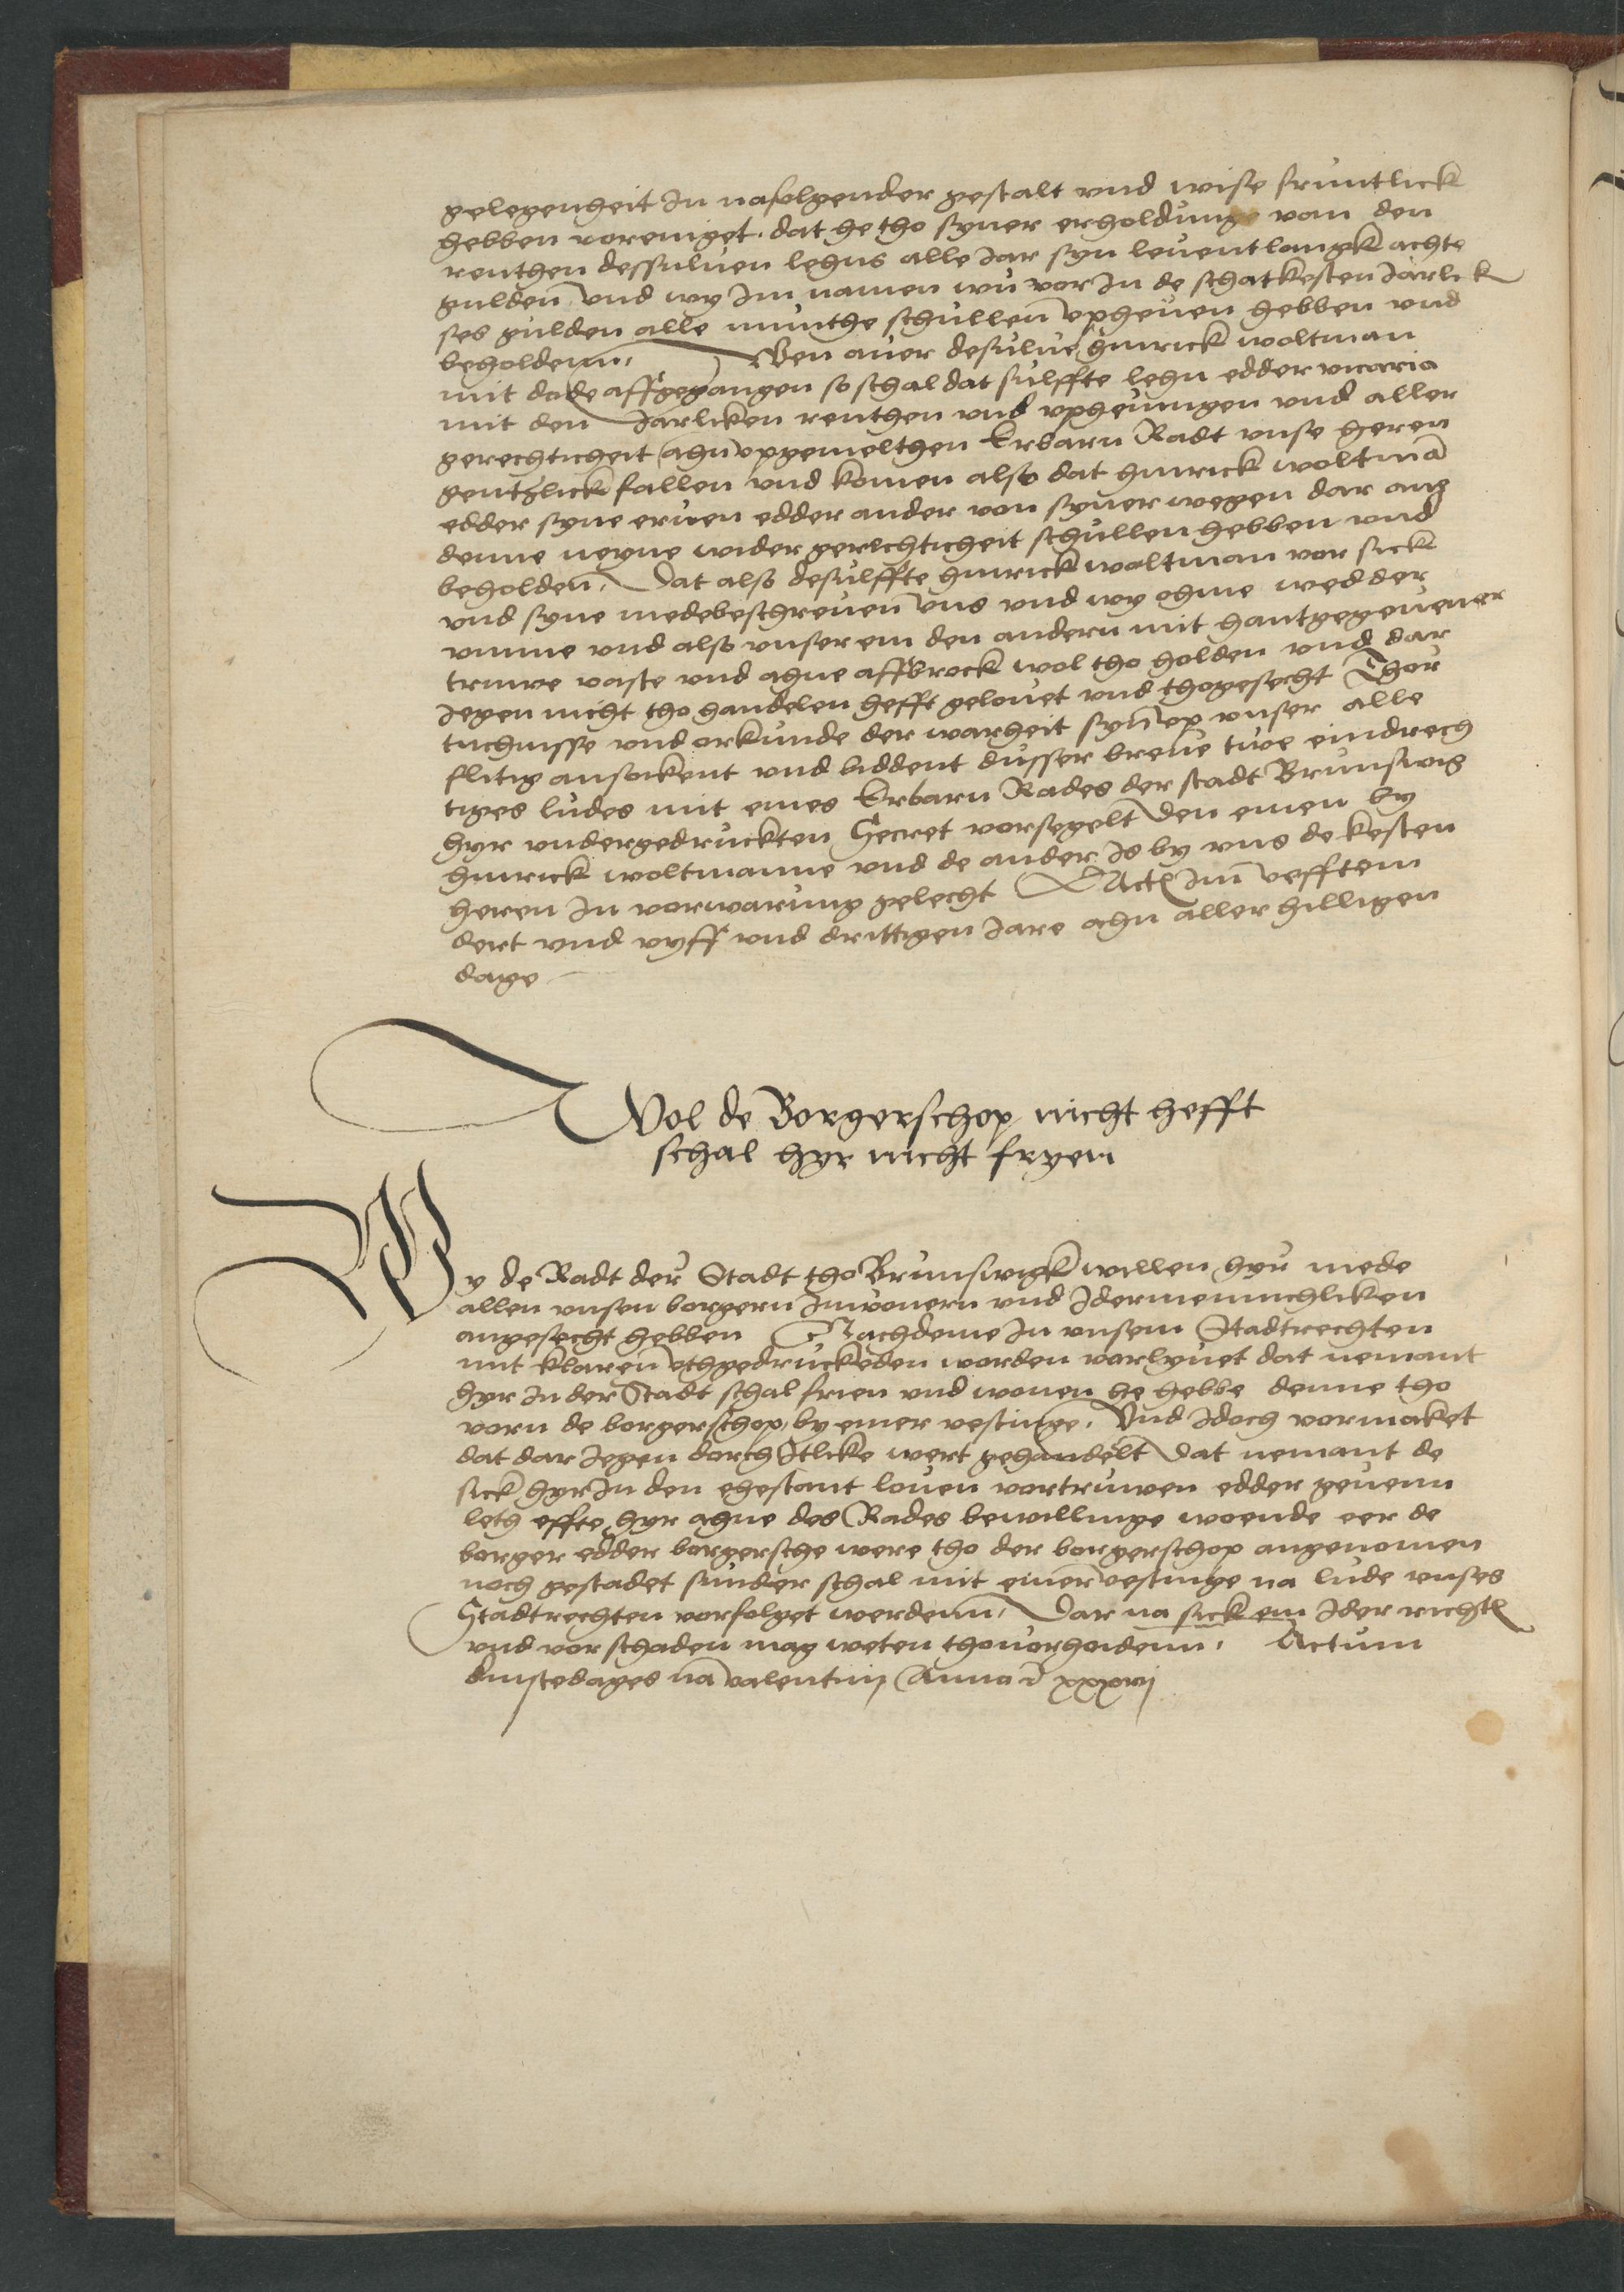 gelegenheit In nafolgender gestalt vnd wise fruntlick
hebben voreniget. dat he tho syner erholdunge van den
renthen dessuluen lehns alle Jar syn leuentlangk achte
gulden vnd wy Im namen wu vor In de schatkesten Jarlick
ses gulden alle munthe schullen vpheuen hebben vnd
beholdenn. Wen auer desulue hinrick woltman
mit dode affgegangen so schal dat sulffte lehn edder vicaria
mit den Jarliken renthen vnd vpheuingen vnd aller
gerechticheit ahn vpgemelthen Erbarn Radt vnse heren
gentzlick fallen vnd komen also dat hinrick woltmã
edder syne eruen edder ander von syner wegen dar ang
denne neyne wider gerechticheit schullen hebben vnd
beholden. Dat also desulffte hinrick woltman vor sick
vnd syne medebeschreuen vns vnd wy ohme wedder
vmme vnd also vnser ein den andern mit hantgegeuener
truwe vaste vnd ahne affbrock wol tho holden vnd dar
Jegen nicht tho handelen hefft gelouet vnd thogesecht Thor
tuchnisse vnd orkunde der warheit syn vp vnser alle
flitig ansoikent vnd biddent dusser breue twe eindrech
tiges ludes mit eines Erbarn Rades der stadt Brunswig
hyr vndergedruckten Secret vorsegelt den einen by
hinrick woltmanne vnd de ander Is by vns de kesten
heren In vorwarung gelecht Act Im vefftein
dert vnd vyff vnd drittigen Jare ahn aller hilligen
dage
Wol de Borgerschop nicht hefft
schal hyr nicht fryen
Wy de Radt der Stadt tho Brunswigk willen hyr mede
allen vnsen borgern Inwonern vnd Idermennichliken
angesecht hebben Nachdeme In vnsem Stadtrechten
mit klaren vthgedruckeden worden vorlyuet dat nemant
hyr In der Stadt schal frien vnd wonen he hebbe denne tho
vorn de borgerschop by einer vestinge. Vnd Idoch vormaket
dat dar Jegen dorch Itlike wert gehandelt dat nemant de
sick hyr In den ehestant louen vortruwen edder geuenn
leth effte hyr ahne des Rades bewillinge woende eer de
borger edder borgersche were tho der borgerschop angenomen
noch gestadet sunder schal mit einer vestinge na lude vnses
Stadtrechten vorfolget werdenn. Dar na sick ein Ider richte
vnd vor schaden mag weten thouorhoidenn. Actum
dinstedages na valentinij Anno &c xxxvij